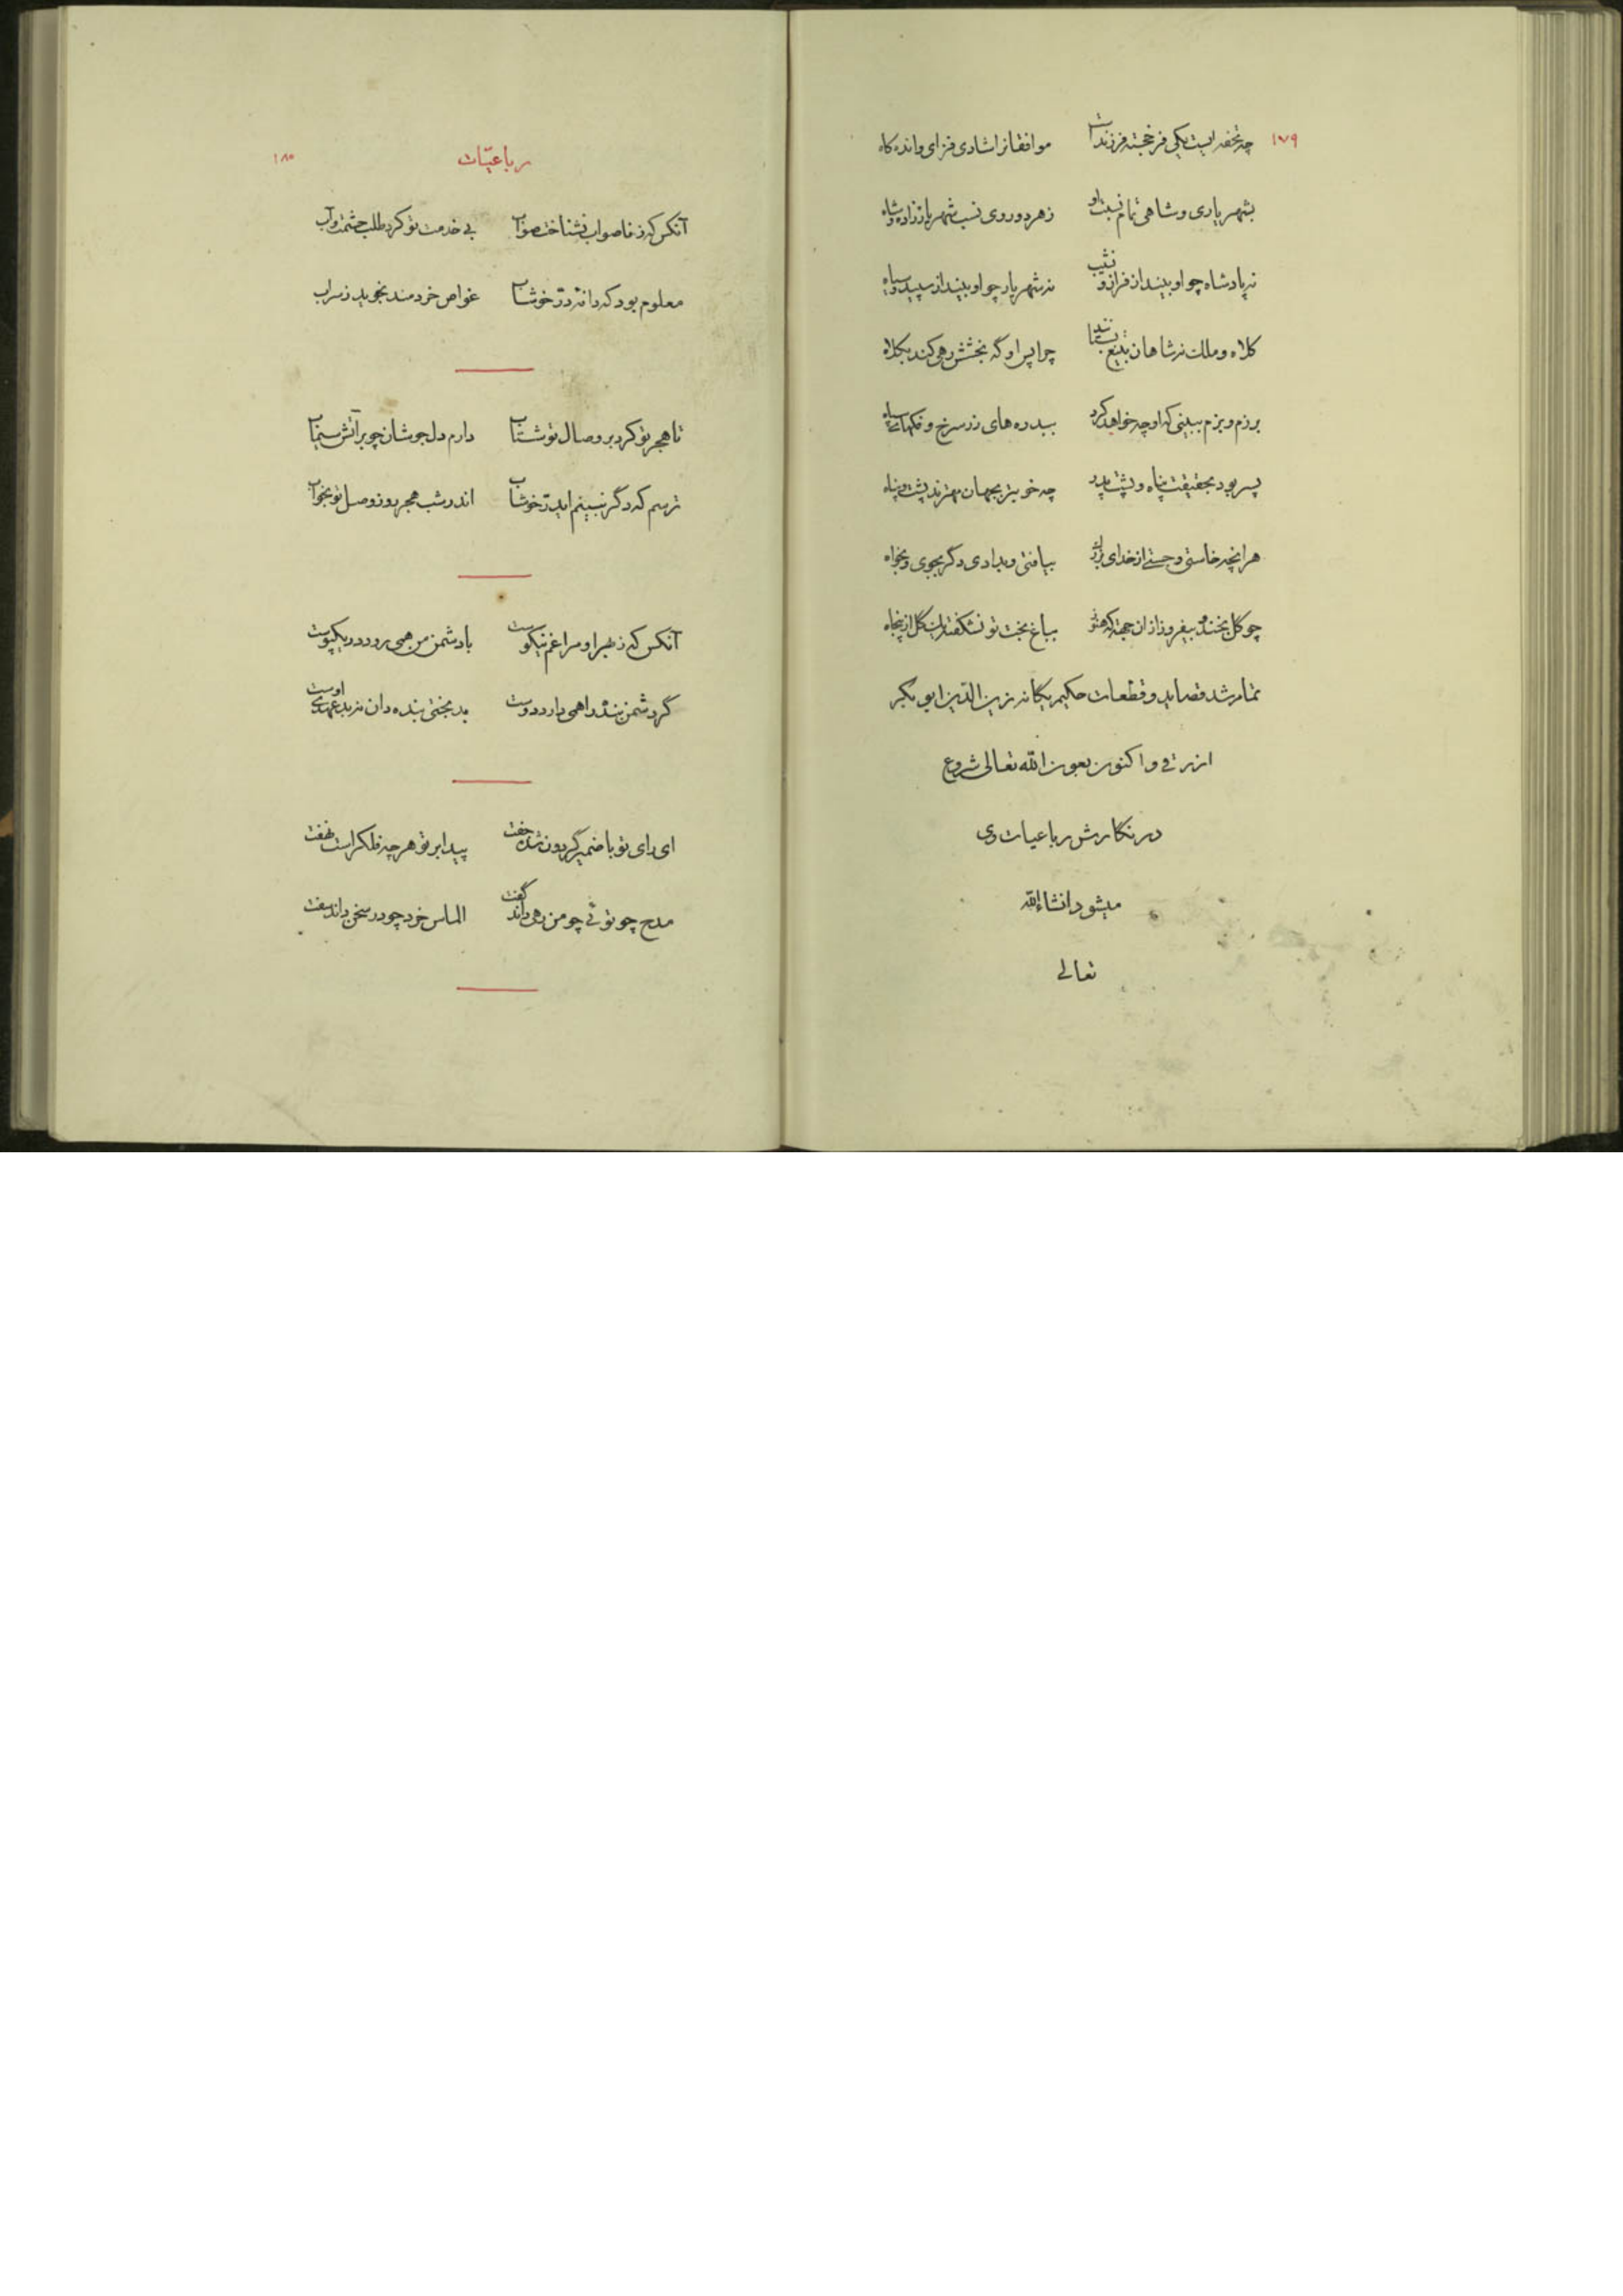 ١٧٩
چه تحفه ایست یکی فرخجسته فرزند است موافقانرا شادی فزای و انده کاه
بشهریاری و شاهی تمام نسبت او ز هر دو روی نسب شهریارزاده و شاه
نه پادشاه چو او بیند از فراز و نشیب نه شهریار چو او بیند از سپید و سیاه
کلاه و ملک ز شاهان بتیغ بستاند چرا پس او گه بخشش رهی کند بکلاه
برزم و بزم ببینی که او چه خواهد کرد ببدره های زر سرخ و
پسر بود بحقیقت پناه و پشت پدر چه خوبتر بجهان مهتر ز پشت و پناه
هر انچه خاستی و جستی از خدای بزرگ بیافتی و بدادی دگر بجوی و بخواه
چو گل بخند و بیفروز از ان جهة که هنوز بباغ بخت تو نشکفته این گل از پنجاه
تمام شد قصاید و قطعات حکیم یگانه زین الدّین ابو بکر
ازرقی و اکنون بعون الله تعالی شروع
در نگارش رباعیات وی
میشود انشاءالله
تعالی
١٨٠
رباعیّات
آنکس که ز ناصواب نشناخت صواب بی خدمت تو کرد طلب حشمت و آب
معلوم بود که دانهٔ درّ خوشاب غواص خردمند نجوید ز سراب
تا هجر تو کرد بر وصال تو شتاب دارم دل جوشان چو بر آتش سیماب
ترسم که دگر نبینم ای درّ خوشاب اندر شب هجر روز وصل تو بخواب
آنکس که ز بهر او مرا غم نیکوست با دشمن من همی رود در یکپوست
گر دشمن بنده را همی دارد دوست بدبختی بنده دان نه بد عهدی اوست
ای رای تو با ضمیر گردون شده جفت پیدا بر تو هر چه فلکراست نهفت
مدح چو توئی چو من رهی داند گفت الماس خرد چو در سخن داند سفت